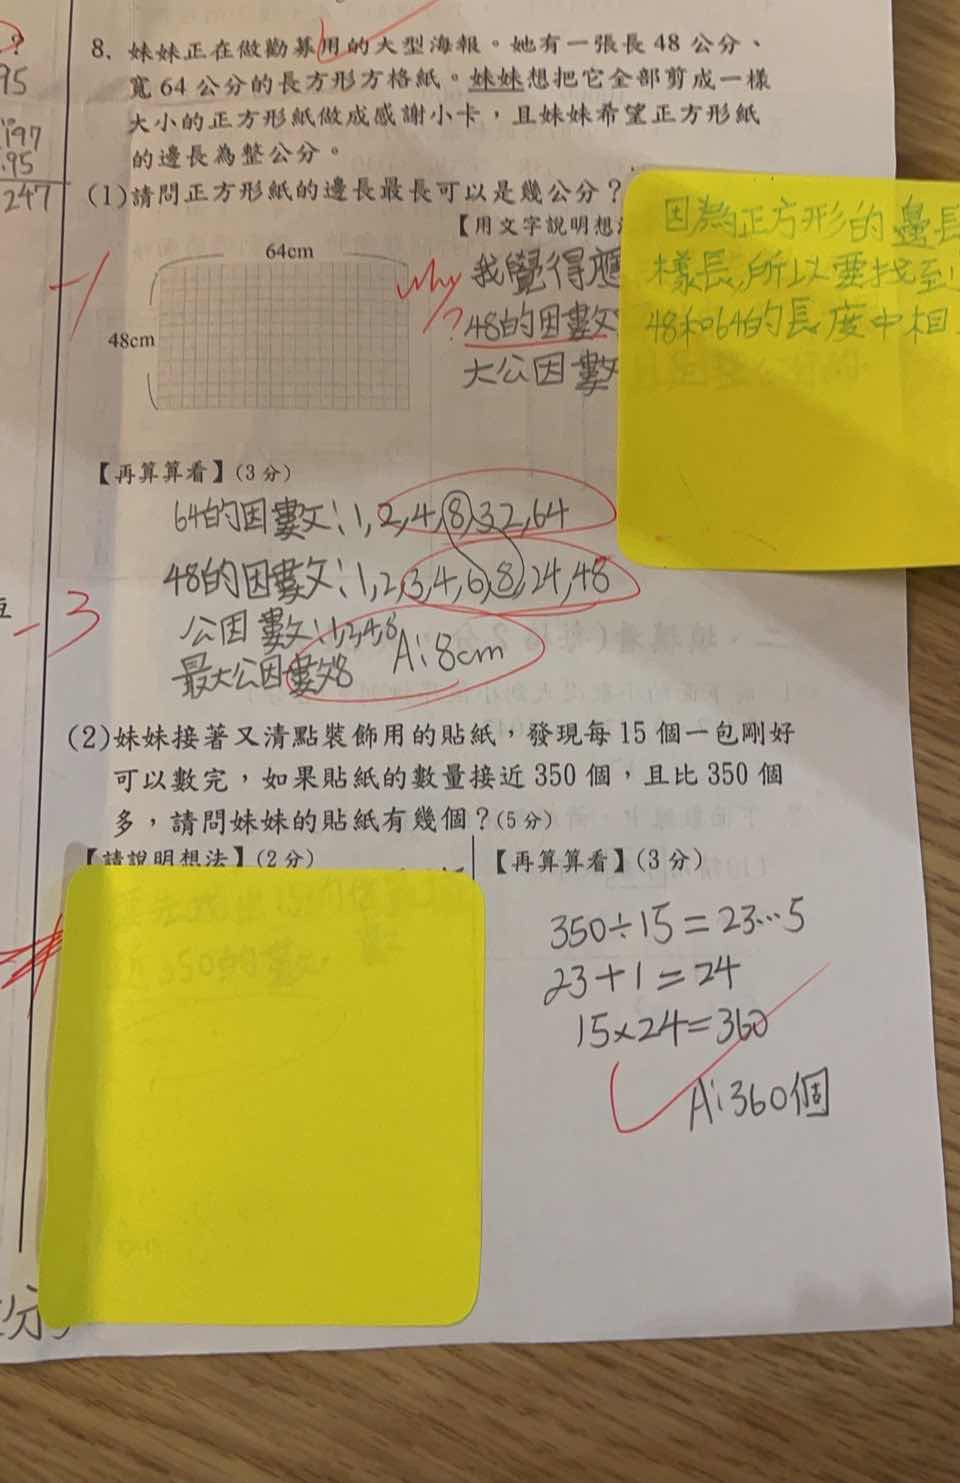 ?
95
197
.95
247
8. 妹妹正在做勸募用的大型海報。她有一張長 48 公分、
寬 64 公分的長方形方格紙。妹妹想把它全部剪成一樣
大小的正方形紙做成感謝小卡,且妹妹希望正方形紙
的邊長為整公分。
(1)請問正方形紙的邊長最長可以是幾公分?
【用文字說明想
64cm
48cm
-1
why
?
我覺得應
48的因數
大公因數
因為正方形的邊長
樣長,所以要找到
48和64的長度中相
【再算算看】(3 分)
64的因數:1,2,4,8,32,64
48的因數:1,2,3,4,6,8,24,48
公因數:1,2,4,8
最大公因數8
A:8cm
-3
(2)妹妹接著又清點裝飾用的貼紙,發現每 15 個一包剛好
可以數完,如果貼紙的數量接近 350 個,且比 350 個
多,請問妹妹的貼紙有幾個?(5 分)
【請說明想法】(2 分)
【再算算看】(3 分)
350÷15=23…5
23+1=24
15×24=360
A:360個
分